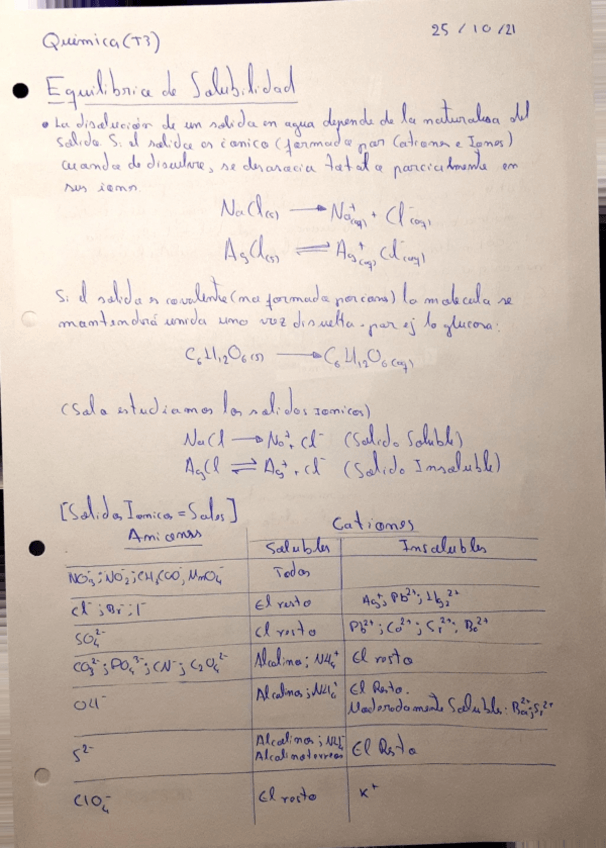 Química (T3)
25/10/21
Equilibrio de Solubilidad
• La disolución de un solido en agua depende de la naturalesa del
solido. Si el solido es ionico (formado por Cationes e Iones)
cuando de disuelve, se desasocia total o parcialmente en
sus iones.
NaCl(s) → Na⁺(aq) + Cl⁻(aq)
AgCl(s) ⇌ Ag⁺(aq) Cl⁻(aq)
Si el solido es covalente (no formado por iones) la molecula se
mantendrá unida una vez disuelta. por ej la glucosa:
C₆H₁₂O₆(s) → C₆H₁₂O₆(aq)
(Solo estudiamos los solidos Ionicos)
NaCl → Na⁺, Cl⁻ (Solido Soluble)
AgCl ⇌ Ag⁺, Cl⁻ (Solido Insoluble)
[Solidos Ionicos = Sales]
Cationes
Aniones Solubles Insolubles
NO₃⁻; NO₂⁻; CH₃COO⁻; MnO₄⁻ Todos
Cl⁻; Br⁻; I⁻ El resto Ag⁺; Pb²⁺; Hg₂²⁺
SO₄²⁻ El resto Pb²⁺; Ca²⁺; Sr²⁺; Ba²⁺
CO₃²⁻; PO₄³⁻; CN⁻; C₂O₄²⁻ Alcalinos; NH₄⁺ El resto
OH⁻ Alcalinos; NH₄⁺ El Resto.
Moderadamente Soluble: Ba²⁺; Sr²⁺
S²⁻ Alcalinos; NH₄⁺ El Resto
Alcalinoterreos
ClO₄⁻ El resto K⁺